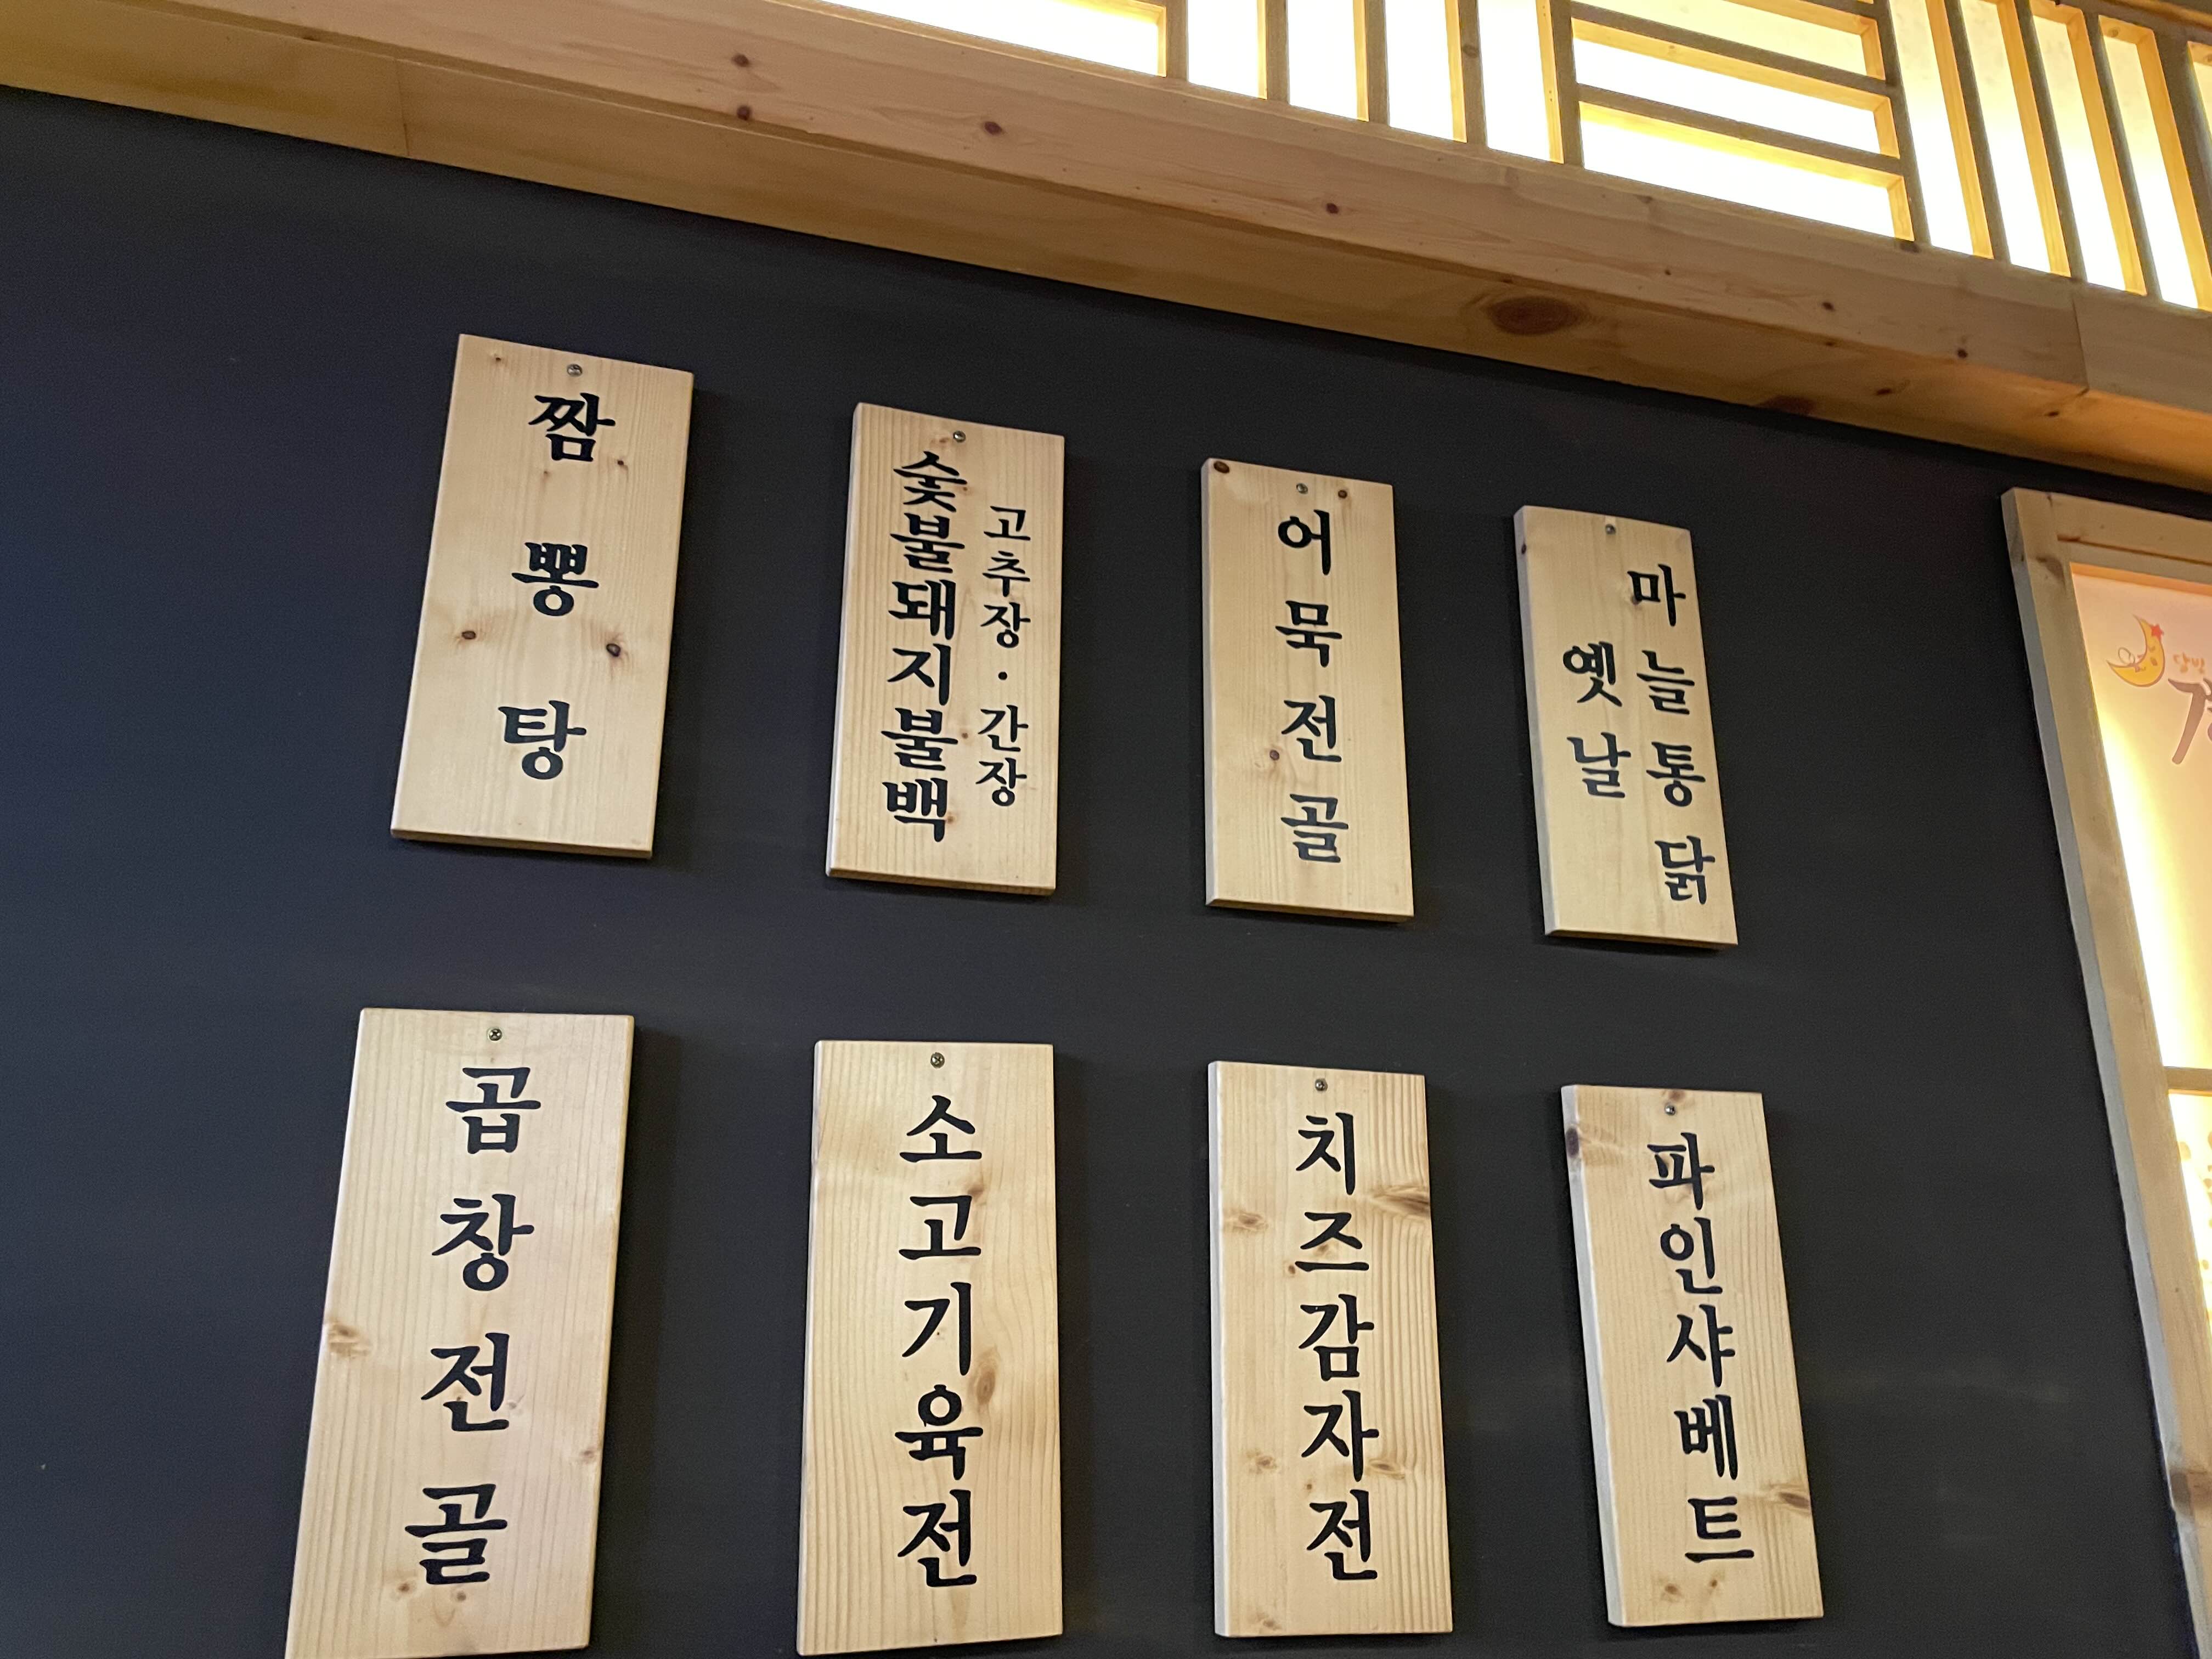 짬뽕탕
숯불돼지불백
고추장·간장
어묵전골
옛날
마늘통닭
곱창전골
소고기육전
치즈감자전
파인샤베트